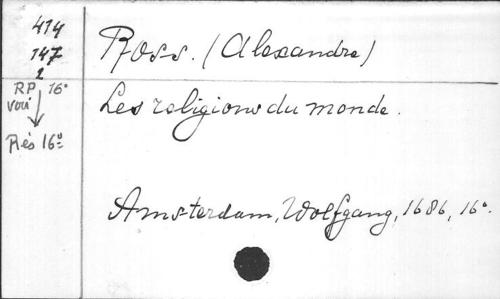 414
147
2
RP 16°
voir
Rés 16°
Ross. (Alexandre)
Les religions du monde.
Amsterdam, Wolfgang, 1686, 16°.